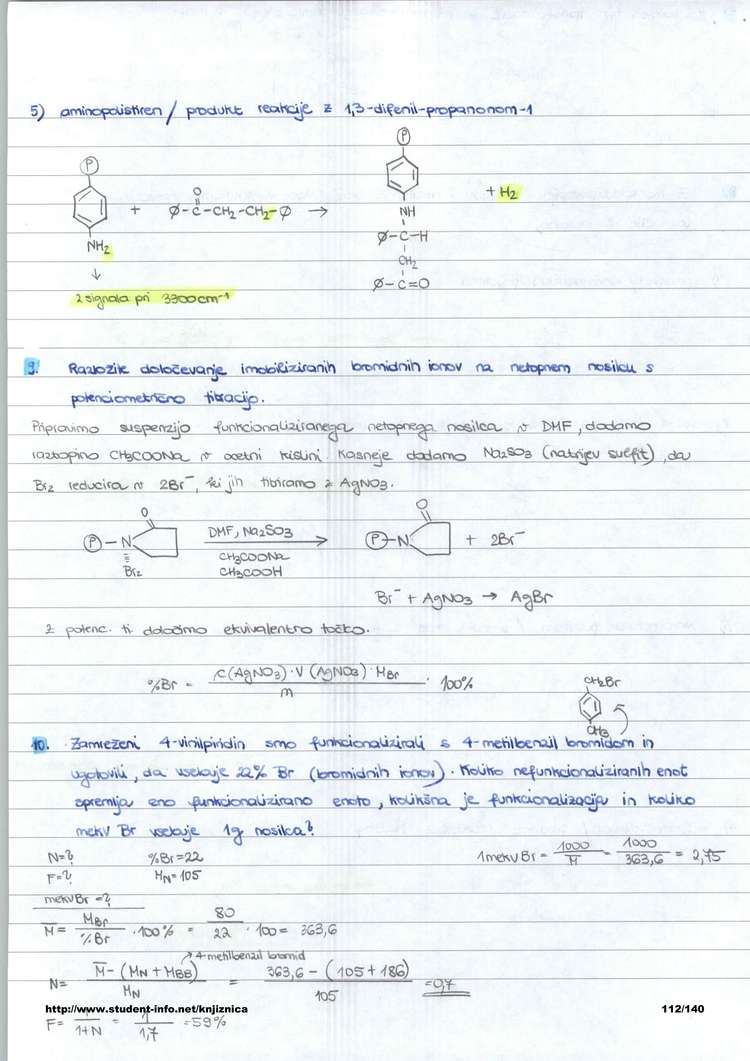 5) aminopolistiren / produkt reakcije z 1,3-difenil-propanonom-1
P
P
+ H2
O
+ Ø-C-CH2-CH2-Ø →
NH
NH2
Ø-C-H
↓
CH2
2 signala pri 3300cm-1
Ø-C=O
9. Razložite določevanje imobiliziranih bromidnih ionov na netopnem nosilcu s
potenciometrično titracijo.
Pripravimo suspenzijo funkcionaliziranega netopnega nosilca v DMF, dodamo
raztopino CH3COONa v ocetni kislini. Kasneje dodamo Na2SO3 (natrijev sulfit), da
Br2 reducira v 2Br-, ki jih titriramo z AgNO3.
O
O
P-N
DMF, Na2SO3
P-N
+ 2Br-
CH3COONa
Br2
CH3COOH
Br- + AgNO3 → AgBr
Z potenc. ti. določimo ekvivalentno točko.
%Br = c(AgNO3)·V(AgNO3)·MBr / m · 100%
CH2Br
CH3
10. Zamreženi 4-vinilpiridin smo funkcionalizirali s 4-metilbenzil bromidom in
ugotovili, da vsebuje 22% Br (bromidnih ionov). Koliko nefunkcionaliziranih enot
spremlja eno funkcionalizirano enoto, kolikšna je funkcionalizacija in koliko
mekv Br vsebuje 1g nosilca?
N=? %Br=22 1mekv Br = 1000/M = 1000/363,6 = 2,75
F=? MN=105
mekv Br =?
M = MBr/%Br · 100% = 80/22 · 100 = 363,6
4-metilbenzil bromid
N = M-(MN+MBB)/MN = 363,6-(105+186)/105 = 0,7
http://www.student-info.net/knjiznica 112/140
F = 1/1+N = 1/1,7 = 59%